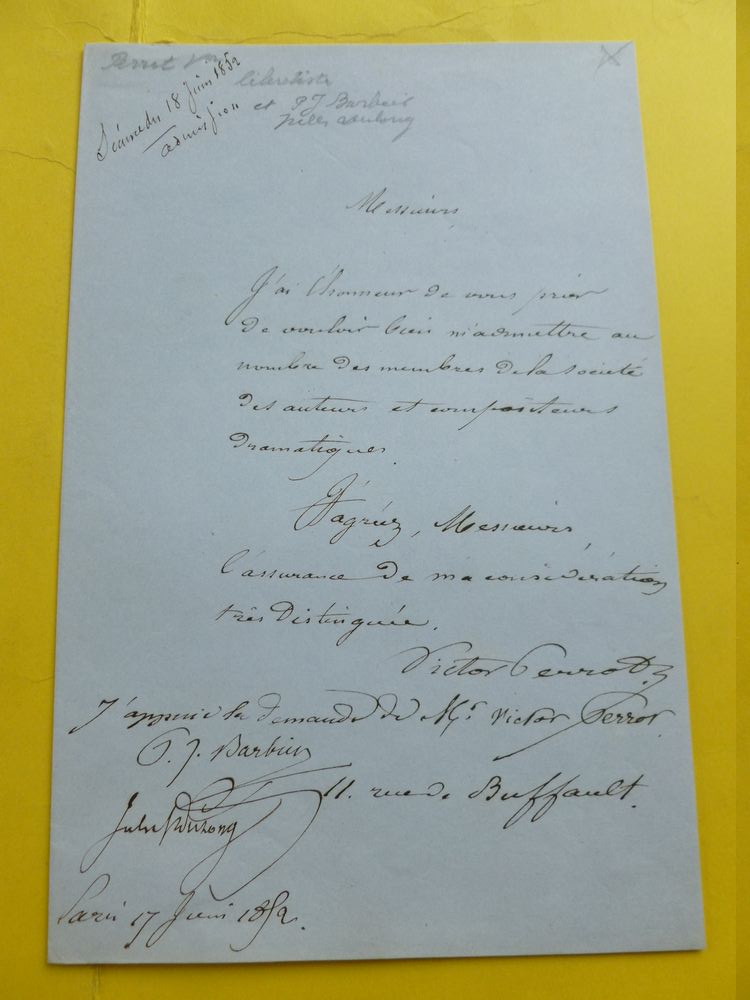 Perrot Vor
libretiste
et P J Barbier
Jules
Séance du 18 Juin 1852
admission
Messieurs
J'ai l'honneur de vous prier
de vouloir bien m'admettre au
nombre des membres de la société
des auteurs et compositeurs
dramatiques.
J'agréez, Messieurs,
l'assurance de ma considération
très distinguée.
Victor Perrot
J'appuie la demande de Mr Victor Perrot.
P. J. Barbier
11. rue de Buffault.
Jules
Paris 17 Juin 1852.